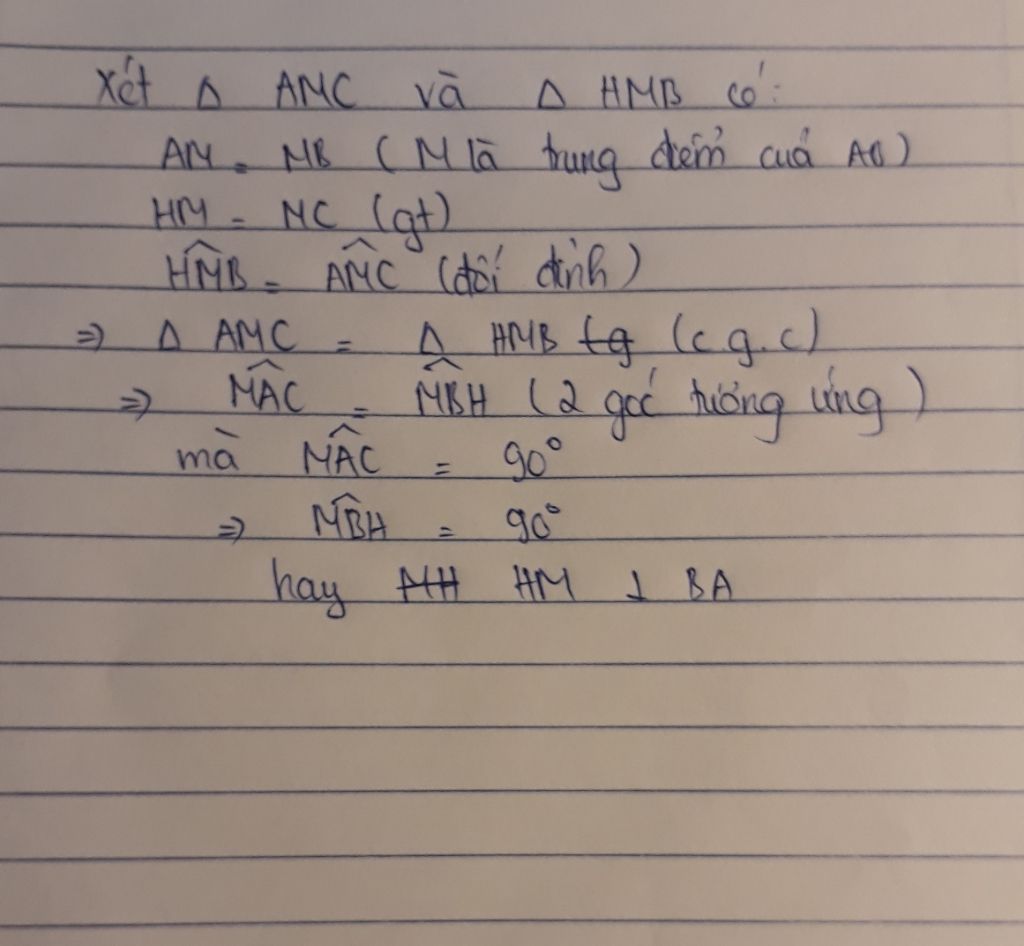 Xét Δ AMC và Δ HMB có:
AM = MB (M là trung điểm của AB)
HM = MC (gt)
HMB = AMC (đối đỉnh)
⇒ Δ AMC = Δ HMB (c.g.c)
⇒ MAC = MBH (2 góc tương ứng)
mà MAC = 90°
⇒ MBH = 90°
hay HM ⊥ BA